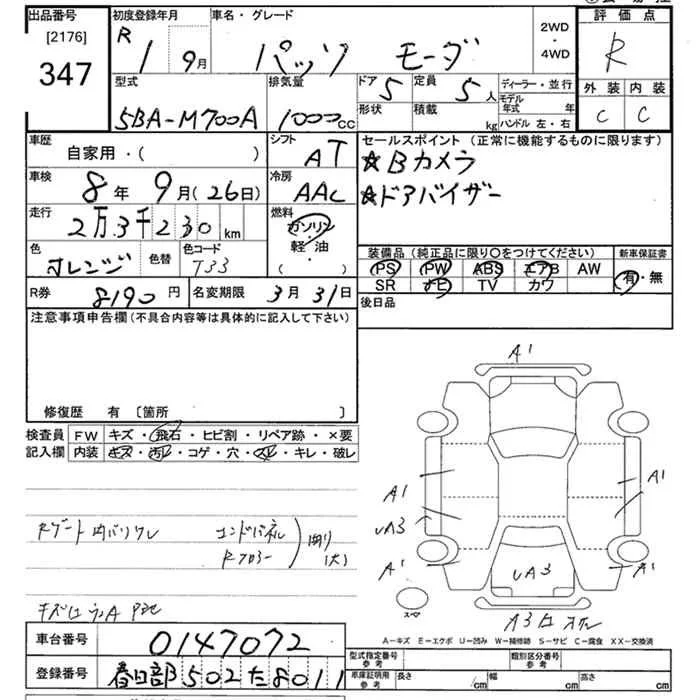 出品番号 初度登録年月 車名・グレード 2WD・4WD 評価点
[2176] R 1 9月 パッソ モーダ R
347
型式 排気量 ドア 5 定員 5人 ディーラー・並行 外装 内装
5BA-M700A 1000cc 形状 積載 kg モデル年式 年 C C
ハンドル 左・右
車歴 シフト セールスポイント (正常に機能するものに限ります)
自家用・( ) AT ☆Bカメラ
車検 8年 9月(26日) 冷房 AAC ☆ドアバイザー
走行 2万3千230km 燃料 ガソリン
軽・油
( )
色 オレンジ 色替 色コード T33
装備品 (純正品に限り○をつけてください) 新車保証書
PS PW ABS エアB AW 有・無
SR ナビ TV カワ
R券 8190円 名変期限 3月31日 後日品
注意事項申告欄(不具合内容等は具体的に記入して下さい)
修復歴 有 〔箇所 〕
検査員 FW キズ・飛石・ヒビ割・リペア跡・×要
記入欄 内装 キズ・汚レ・コゲ・穴・スレ・キレ・破レ
A1
A1 A1
UA3
A1 A1
UA3
Rゲート内バリワレ エンドパネル
Rフロアー
スペア
A3
A―キズ E―エクボ U―凹み W―補修跡 S―サビ C―腐食 XX―交換済
車台番号 0147072 型式指定番号 参考 類別区分番号 参考
登録番号 春日部502た8011 車庫証明用 参考 長さ cm 幅 cm 高さ cm